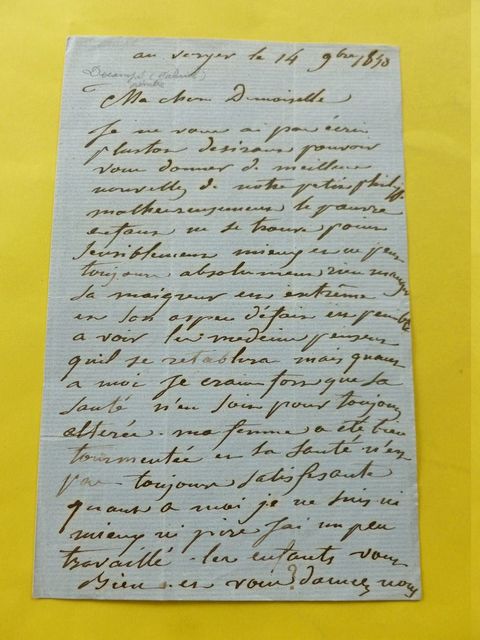 au verger le 14 9bre 1858
Decamps (Gabriel)
peintre
Ma chere Dmoiselle
Je ne vous ai pas écrit
plustot desirant pouvoir
vous donner de meilleure
nouvelles de notre petit philipp
malheureusement le pauvre
enfant ne se trouve pas
sensiblement mieux et ne peut
toujours absolument rien manger
sa maigreur est extrême
et son aspect d'étain est penible
a voir les medecins pensent
qu'il se retablira mais quant
a moi je crains fort que sa
santé n'en soit pour toujours
altérée. ma femme a été bien
tourmentée et sa santé n'est
pas toujours satisfesante
quant a moi je ne suis ni
mieux ni pire j'ai un peu
travaillé. les enfants vont
bien. et vous? donnez nous